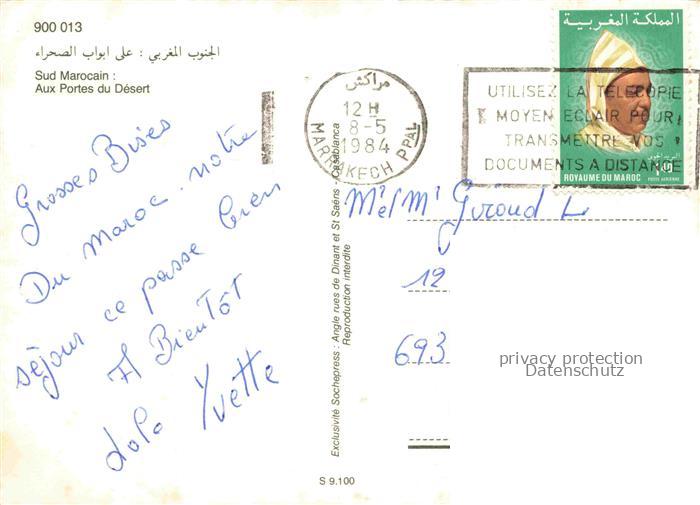 900 013
الجنوب المغربي : على ابواب الصحراء
Sud Marocain :
Aux Portes du Désert
Grosses Bises
Du Maroc. notre
séjour ce passe bien
A Bientôt
Lolo Yvette
مراكش
12 H
8-5
1984
MARRAKECH PPAL
UTILISEZ LA TELECOPIE
MOYEN ECLAIR POUR
TRANSMETTRE VOS
DOCUMENTS A DISTANCE
المملكة المغربية
البريد الجوي
ROYAUME DU MAROC POSTE AERIENNE
Giroud L
12
693
Exclusivité Sochepress : Angle rues de Dinant et St Saëns - Casablanca
Reproduction interdite
S 9.100
privacy protection
Datenschutz